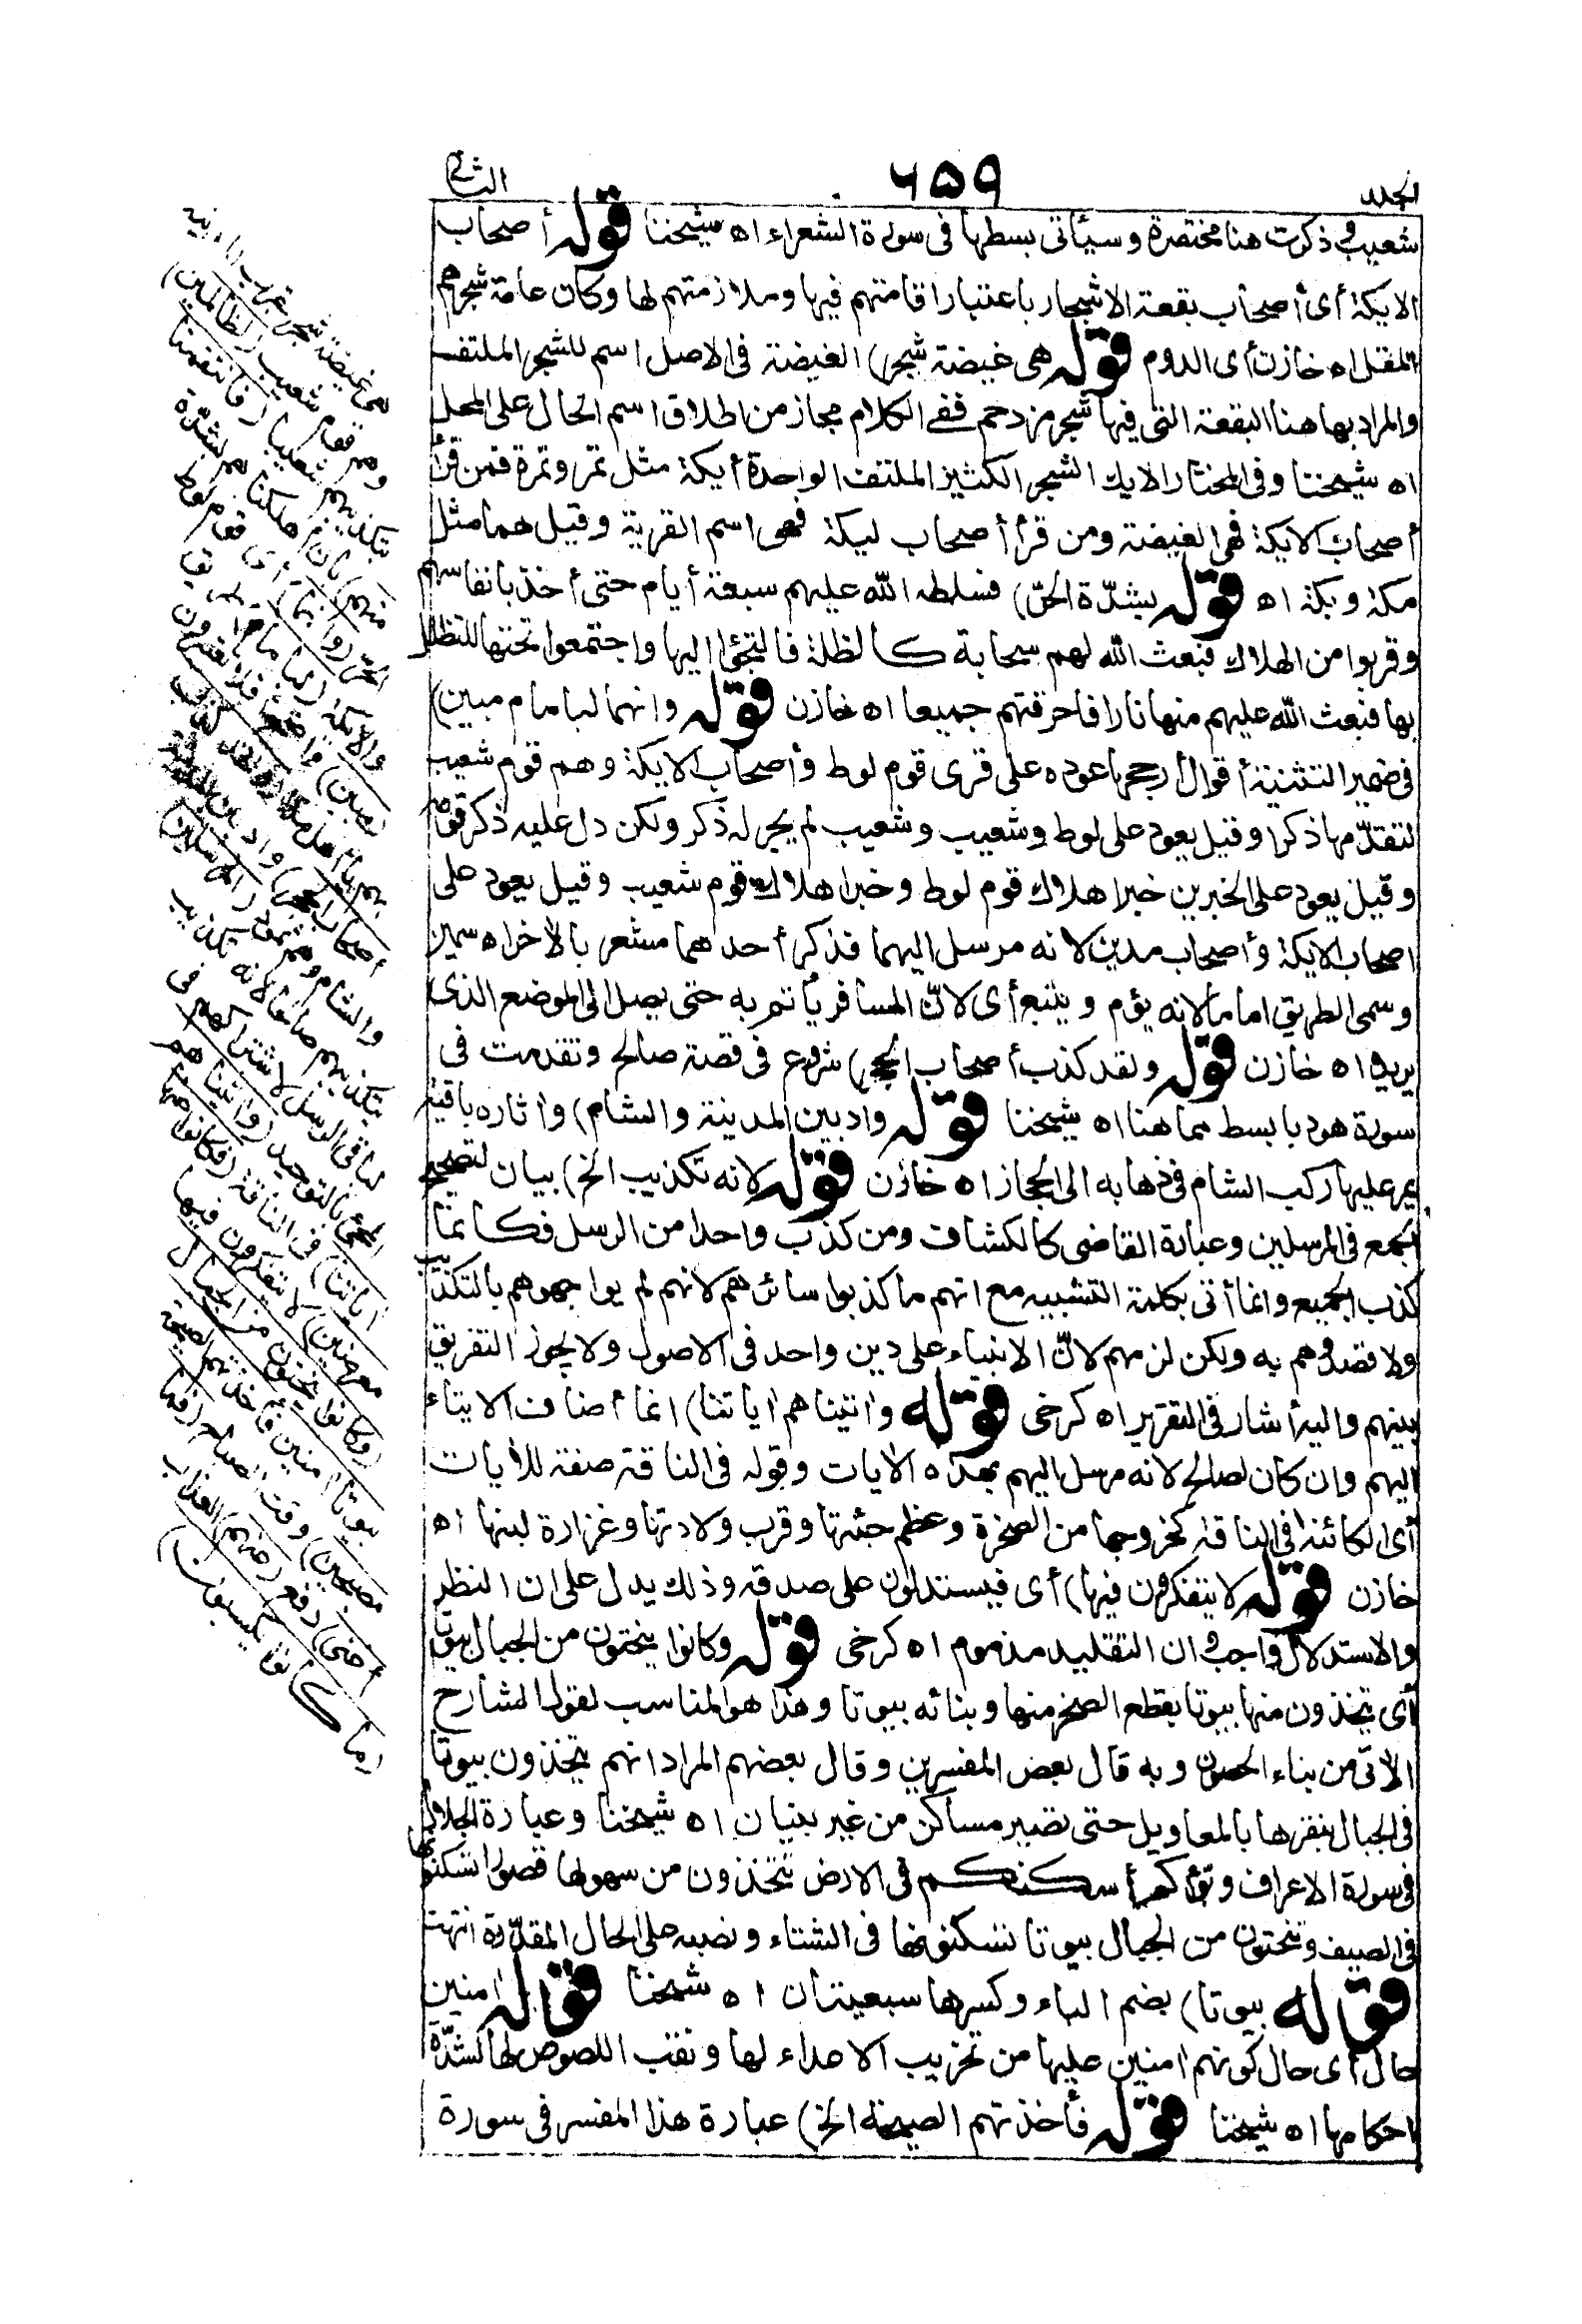 الجلد
٦٥٩
الثانى
شعيب فى ذكرت هنا مختصرة وسيأتى بسطها فى سورة الشعراء اه شيخنا قوله أصحاب
الايكة أى أصحاب بقعة الاشجار باعتبار اقامتهم فيها وملازمتهم لها وكان عامة شجرهم
المقل اه خازن أى الدوم قوله هى غيضة شجر) الغيضة فى الاصل اسم للشجر الملتف
والمراد بها هنا البقعة التى فيها شجر مزدحم ففى الكلام مجاز من اطلاق اسم الحال على المحل
اه شيخنا وفى المختار الايك الشجر الكثير الملتف الواحدة أيكة مثل تمر وتمرة فمن قرأ
أصحاب الايكة فهى الغيضة ومن قرأ أصحاب ليكة فهى اسم القرية وقيل هما مثل
مكة وبكة اه قوله بشدّة الحرّ) فسلطه الله عليهم سبعة أيام حتى أخذ بانفاسهم
وقربوا من الهلاك فبعث الله لهم سحابة كالظلة فالتجؤا اليها واجتمعوا تحتها للتظلل
بها فبعث الله عليهم منها نارا فاحرقتهم جميعا اه خازن قوله وانهما لبامام مبين)
فى ضمير التثنية أقوال أرجحها عوده على قرى قوم لوط وأصحاب الايكة وهم قوم شعيب
لتقدّمها ذكرا وقيل يعود على لوط وشعيب وشعيب لم يجر له ذكر ولكن دل عليه ذكر قومه
وقيل يعود على الخبرين خبر اهلاك قوم لوط وخبر اهلاك قوم شعيب وقيل يعود على
اصحاب الايكة وأصحاب مدين لانه مرسل اليهما فذكر أحدهما مشعر بالآخر اه سمين
وسمى الطريق اماما لانه يؤم ويتبع أى لانّ المسافر يأتم به حتى يصل الى الموضع الذى
يريده اه خازن قوله ولقد كذب أصحاب الحجر) شروع فى قصة صالح وتقدمت فى
سورة هود بابسط مما هنا اه شيخنا قوله واد بين المدينة والشام) واثاره باقية
يمر عليها ركب الشام فى ذهابه الى الحجاز اه خازن قوله لانه تكذيب الخ) بيان لتصحيح
الجمع فى المرسلين وعبارة القاضى كالكشاف ومن كذب واحدا من الرسل فكانما
كذب الجميع وانما أتى بكلمة التشبيه مع انهم ما كذبوا سائرهم لانهم لم يواجهوهم بالتكذيب
ولا قصدوهم به ولكن لزمهم لانّ الانبياء على دين واحد فى الاصول ولا يجوز التفريق
بينهم واليه أشار فى التقرير اه كرخى قوله واتيناهم اياتنا) انما أضاف الايتاء
اليهم وان كان لصالح لانه مرسل اليهم بهذه الايات وقوله فى الناقة صفة للآيات
أى الكائنة فى الناقة كخروجها من الصخرة وعظم جثتها وقرب ولادتها وغزارة لبنها اه
خازن قوله لا يتفكرون فيها) أى فيستدلون على صدقه وذلك يدل على ان النظر
والاستدلال واجب وان التقليد مذموم اه كرخى قوله وكانوا ينحتون من الجبال بيوتا
أى يتخذون منها بيوتا بقطع الصخر منها وبنائه بيوتا وهذا هو المناسب لقول الشارح
الآتى من بناء الحصون وبه قال بعض المفسرين وقال بعضهم المراد انهم يتخذون بيوتا
فى الجبال بنقرها بالمعاويل حتى تصير مساكن من غير بنيان اه شيخنا وعبارة الجلال
فى سورة الاعراف وبوّأكم أسكنكم فى الارض تتخذون من سهولها قصورا تسكنونها
فى الصيف وتنحتون من الجبال بيوتا تسكنونها فى الشتاء ونصبه على الحال المقدّرة انتهت
قوله بيوتا) بضم الباء وكسرها سبعيتان اه شيخنا قوله امنين
حال أى حال كونهم امنين عليها من تخريب الاعداء لها ونقب اللصوص لها لشدّة
احكامها اه شيخنا قوله فأخذتهم الصيحة الخ) عبارة هذا المفسر فى سورة
هى غيضة شجر بقرب مدين
وهم قوم شعيب (لظالمين)
بتكذيبهم شعيبا (فانتقمنا
منهم) بأن أهلكناهم بشدّة
الحرّ (وانهما) أى قوم لوط
والايكة (لبامام) طريق
(مبين) واضح أفلا يعتبرون
بهم يا أهل مكة (ولقد كذب
أصحاب الحجر) واد بين المدينة
والشام وهم ثمود (المرسلين)
بتكذيبهم صالحا لانه تكذيب
لباقى الرسل لاشتراكهم فى
المجئ بالتوحيد (واتيناهم
اياتنا) فى الناقة (فكانوا عنها
معرضين) لا يتفكرون فيها
(وكانوا ينحتون من الجبال
بيوتا امنين فأخذتهم الصيحة
مصبحين) وقت الصباح (فما
أغنى) دفع (عنهم) العذاب
(ما كانوا يكسبون)